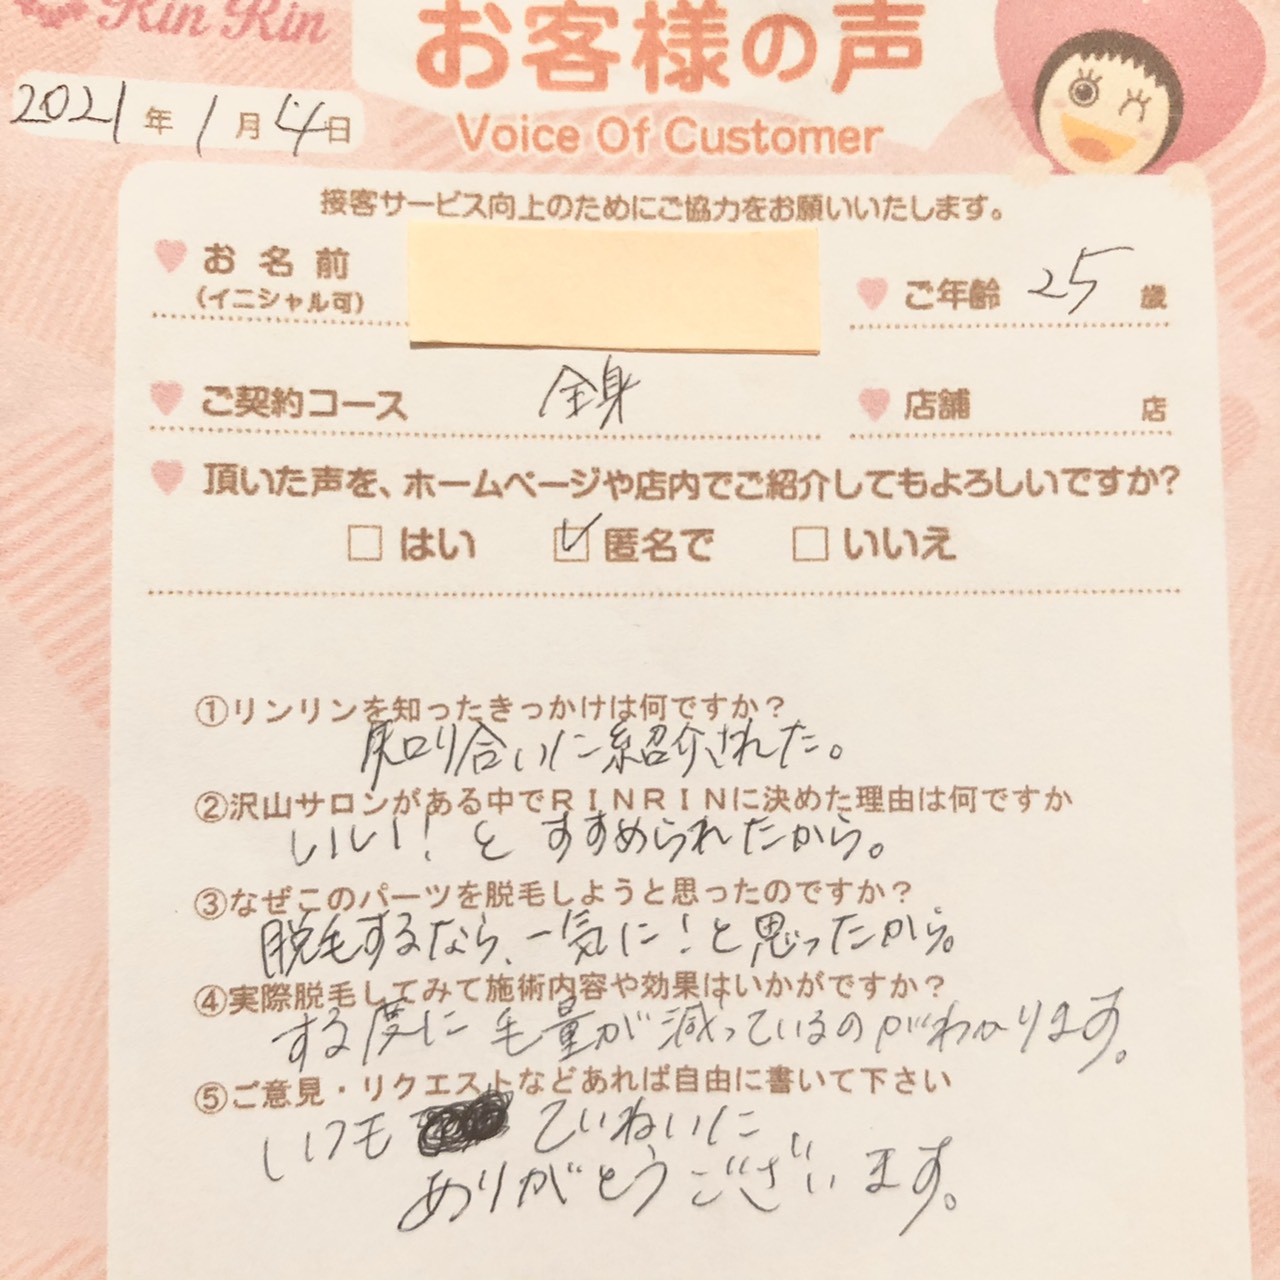 Rin Rin
お客様の声
Voice Of Customer
2021年1月4日
接客サービス向上のためにご協力をお願いいたします。
お名前
(イニシャル可)
ご年齢 25歳
ご契約コース 全身
店舗 店
頂いた声を、ホームページや店内でご紹介してもよろしいですか?
はい 匿名で いいえ
①リンリンを知ったきっかけは何ですか?
知り合いに紹介された。
②沢山サロンがある中でRINRINに決めた理由は何ですか
いい!とすすめられたから。
③なぜこのパーツを脱毛しようと思ったのですか?
脱毛するなら、一気に!と思ったから。
④実際脱毛してみて施術内容や効果はいかがですか?
する度に毛量が減っているのがわかります。
⑤ご意見・リクエストなどあれば自由に書いて下さい
いつも ていねいに
ありがとうございます。